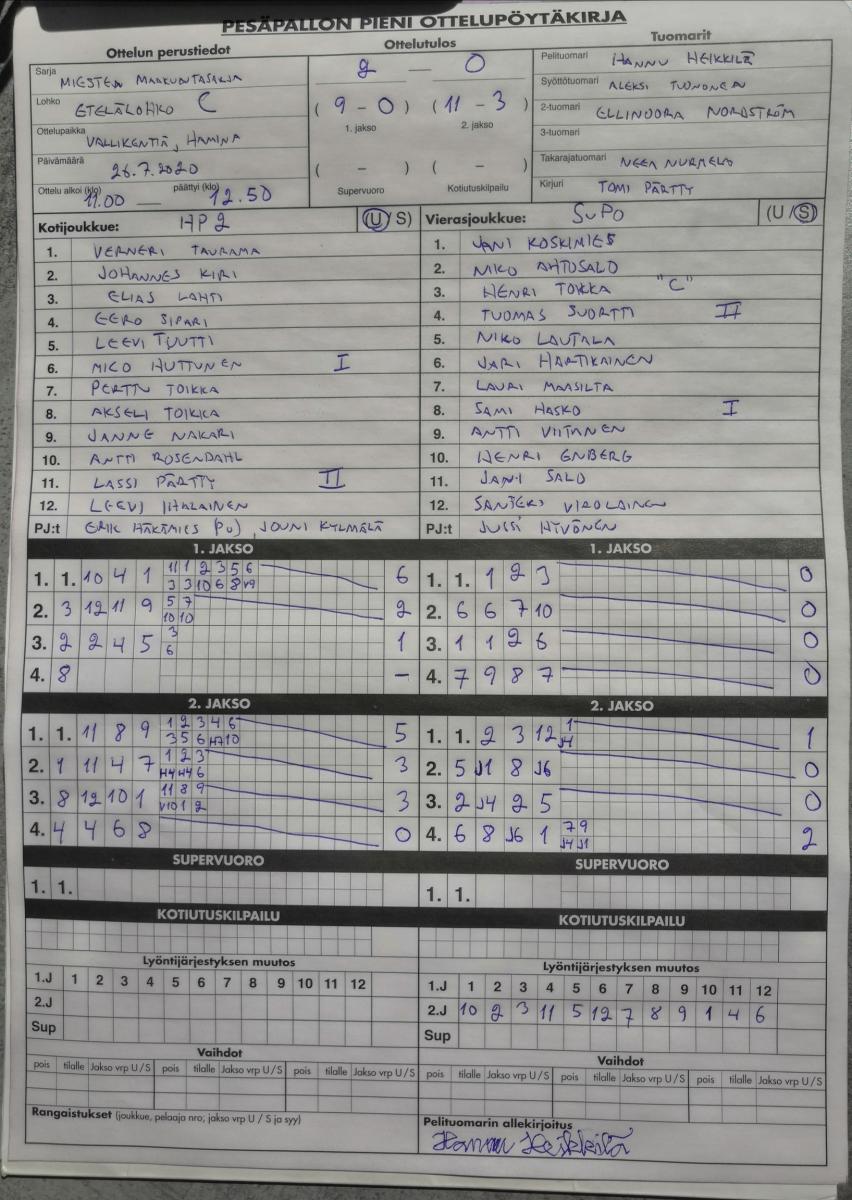 PESÄPALLON PIENI OTTELUPÖYTÄKIRJA
Ottelun perustiedot
Sarja MIESTEN MAAKUNTASARJA
Lohko ETELÄLOHKO C
Ottelupaikka VALLIKENTTÄ, HAMINA
Päivämäärä 26.7.2020
Ottelu alkoi (klo) 11.00 — päättyi (klo) 12.50
Ottelutulos
2 — 0
( 9 - 0 ) ( 11 - 3 )
1. jakso 2. jakso
( - ) ( - )
Supervuoro Kotiutuskilpailu
Tuomarit
Pelituomari HANNU HEIKKILÄ
Syöttötuomari ALEKSI TUONONEN
2-tuomari ELLINOORA NORDSTRÖM
3-tuomari
Takarajatuomari NEEA NURMELA
Kirjuri TOMI PÄRTTY
Kotijoukkue: HP 2 (U/S)
1. VERNERI TAURAMA
2. JOHANNES KIRI
3. ELIAS LAHTI
4. EERO SIPARI
5. LEEVI TUUTTI
6. MICO HUTTUNEN I
7. PERTTU TOIKKA
8. AKSELI TOIKKA
9. JANNE NAKARI
10. ANTTI ROSENDAHL
11. LASSI PÄRTTY II
12. LEEVI IHALAINEN
PJ:t ERIK HÄKÄMIES (PJ), JOUNI KYLMÄLÄ
Vierasjoukkue: SuPo (U/S)
1. JANI KOSKIMIES
2. NIKO AHTOSALO
3. HENRI TOIKKA "C"
4. TUOMAS SUORTTI II
5. NIKO LAUTALA
6. JARI HARTIKAINEN
7. LAURI MAASILTA
8. SAMI HASKO I
9. ANTTI VIITANEN
10. HENRI ENBERG
11. JANI SALO
12. SANTERI VIROLAINEN
PJ:t JUSSI HYVÖNEN
1. JAKSO
1. 1. 10 4 1 11 1 2 3 5 6 6
3 3 10 6 8 V9
2. 3 12 11 9 5 7 2
10 10
3. 2 2 4 5 3 1
6
4. 8 –
1. JAKSO
1. 1. 1 2 3 0
2. 6 6 7 10 0
3. 1 1 2 6 0
4. 7 9 8 7 0
2. JAKSO
1. 1. 11 8 9 1 2 3 4 6 5
3 5 6 H7 10
2. 1 11 4 7 1 2 3 3
H4 H4 6
3. 8 12 10 1 11 8 9 3
V10 1 2
4. 4 4 6 8 0
2. JAKSO
1. 1. 2 3 12 1 1
J4
2. 5 J1 8 J6 0
3. 2 J4 2 5 0
4. 6 8 J6 1 7 9 2
J4 J1
SUPERVUORO
1. 1.
SUPERVUORO
1. 1.
KOTIUTUSKILPAILU
KOTIUTUSKILPAILU
Lyöntijärjestyksen muutos
1.J 1 2 3 4 5 6 7 8 9 10 11 12
2.J
Sup
Lyöntijärjestyksen muutos
1.J 1 2 3 4 5 6 7 8 9 10 11 12
2.J 10 2 3 11 5 12 7 8 9 1 4 6
Sup
Vaihdot
pois tilalle Jakso vrp U/S pois tilalle Jakso vrp U/S pois tilalle Jakso vrp U/S
Vaihdot
pois tilalle Jakso vrp U/S pois tilalle Jakso vrp U/S pois tilalle Jakso vrp U/S
Rangaistukset (joukkue, pelaaja nro; jakso vrp U / S ja syy)
Pelituomarin allekirjoitus
Hannu Heikkilä